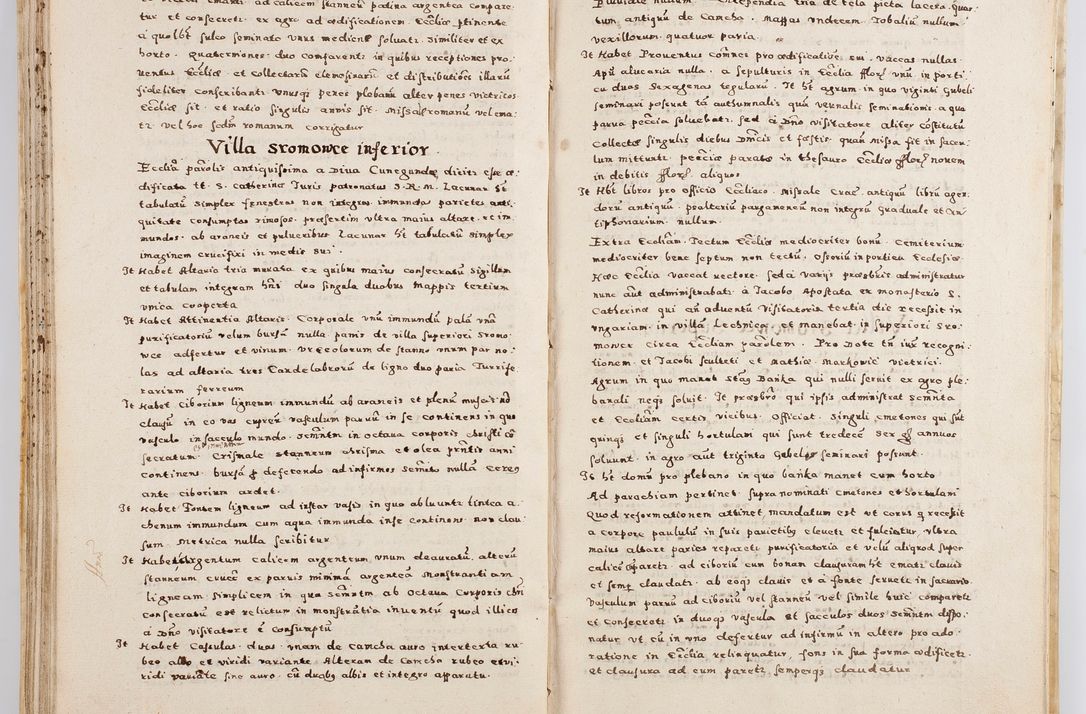 et calicem stanneũ patina argentea compare
tur et consecret: ex agro ad ædificationem Ecclĩæ ptinente
á quolbt sulco seminato vnus mediens soluati. similiter et ex
horto. Quaterniones duo comparent: in quibus receptiones pro
uentus Ecclĩæ et collectarũ elemosinarũ et distributiões illarũ
fideliter conscribanti. vnusqs penes plebanũ alter penes victricos
Ecclĩæ sit. et ratio singulis annis sit. Missale romanũ vel ema
ti vel hoc sedm romanum corrigatur
Villa sromowce inferior.
Ecclĩa parõlis antiquissima a Diua Cunegunda dicitr esse æ
dificata tt. S. Catherinæ Iuris patronatus S.R.M. Lacunar ht
tabulatũ simplex fenestras non integras immundas parietes anti
quitate consumptas rimosos præsertim vltra maius altare et im
mundos ab araneis et puluеribus Lacunar ht tabulatũ simplex
imaginem crucifixi in medio sui
It Habet Altaria tria murata ex quibus maius consecratũ sigillum
et tabulam integram hñs duo singula duobus mappis tertium
vnica cooperta
It Habet Attinentia Altaris. Corporale vnũ immundũ palã vnã
purificatoriũ velum bursã nulla panis de villa superiori sromo
wce adfertur et vinum. Vrceolorum de stanno vnum par no
las ad altaria tres Candelabrorũ de ligno duo paria Turrife
rarium ferreum
It Habet Ciborium ligneum immundũ ab araneis et plenũ muscis nõ
clausũ in eo vas cupreũ vasculum paruũ in se continens in quo
vasculo in sacculo mundo semñtm in octaua corporis christi cõ
secratum. Crismale stanneum chrisma et olea prñtis anni
continens bursã p defecendo ad infirmos semẽto nulla. Cereus
ante ciborium ardet.
It Habet Fontem ligneum ad instar vasis in quo abluuntr lintea a
chenum immundum cum aqua immunda inse continens non clau
sum. metrica nulla scribitur
It Habet Argentum calicem argenteum vnum deauratũ. alterũ
stanneum crucẽ ex paruis minimã argenteã monstrantiam
ligneam simplicem in qua semñtm ab octaua Corporis chri
consecratũ est relictum in monstrãtia inuentũ quod illico
á Dño visitatore ẽ consumptũ
It Habet Casulas. duas. vnam de Camcha auro intertexta ru
beo albo et viridi variante. Alteram de Camcha rubeo et vi
ridi variãte sine auro. cũ duobs albis et integro apparatu.
Pluuiale nullum. Antependia vna de tela picta lacera. quo
tum antiquũ de Camcha. Mappas vndecem. Tobaliũ nullum
vexillorum. quatuor paria.
It Habet Prouentus coñnes pro ædificatiõe eius. vaccas nullas
Apũ aluearia nulla. a sepulturis in Ecclĩa florz vnũ in porti
cu duos sexagenas tegularũ. It ht agrum in quo viginti Gubeli
seminari possunt tã authumnalis quã vernalis seminationis. a qua
parua pecũia soluebatr: sed á Dño visitatore aliter cõstitutũ
Collectæ singulis diebus Dñicis et festis quãn missa fit in sacu
lum mittuntr. pecũiæ paratæ in thesauro Ecclĩæ florz nouem
in debitis florz. aliquos
It Hbt libros pro officio Ecclĩaco. Missale Crac antiquũ librũ agen
dorũ antiquũ. psalteriũ pargameneũ non integrũ Graduale et An
tiphonarium nullum
Extra Ecclĩam. Tectum Ecclĩæ mediocriter bonũ. Cemiterium
mediocriter bene septum non tectũ. Ossoriũ in porticu Ecclesiæ.
Hæc Ecclĩa vaccat rectore. sed a varijs præsbris administratur
nunc aũt administrabatr. á Iacobo Apostata ex monasterio S.
Catherinæ qui añ aduentũ Visitatoris tertia die recessit in
vngariam in villã Lechnica. et manebat in superiori Sro
mowce circa Ecclĩam parõlem. Pro Dote tñ ius recogni
tionem et Iacobi sculteti et Mathiæ Markowic victrici.
Agrum in quo manet Stas Bañka qui nulli seruit ex agro ple
banali neqs soluit. It præsbrõ qui ipsis administrat semñta
et Ecclĩam certis vicibus. Officiat. Singuli cmetones qui sũt
quinqs et singuli hortulani qui sunt tredecẽ ser gr annuos
soluunt. in agro aũt triginta Gubelos seminari possunt.
It ht domũ pro plebano in quo bañka manet cum horto
Ad parochiam pertinet supra nominati cmetones et hortulani
Quod reformationem attinet mandatum est vt corus q recessit
a corpore paululũ in suis parietibs eleuetr et fulciatur, vltra
maius altare paries reparetr purificatoria et velũ aliqrod super
calicẽ cõparetr. ad ciborium cum bonam clausuram ht emati clauis
et semp claudatr. ab eoqs clauis et á fonte seruetr in sacrario
vasculum paruũ ad ciboriũ vel stanneũ vel simile huic comparetr
et Consecretr. in duoqs vascula et sacculos duos semñtm dispo
natur vt cũ in vno defertur ad infirmũ in altero pro ado
ratione in Ecclĩa relinquatur, fons in sua forma ædificetr
et clausura ad eum paretr semperqs claudatur